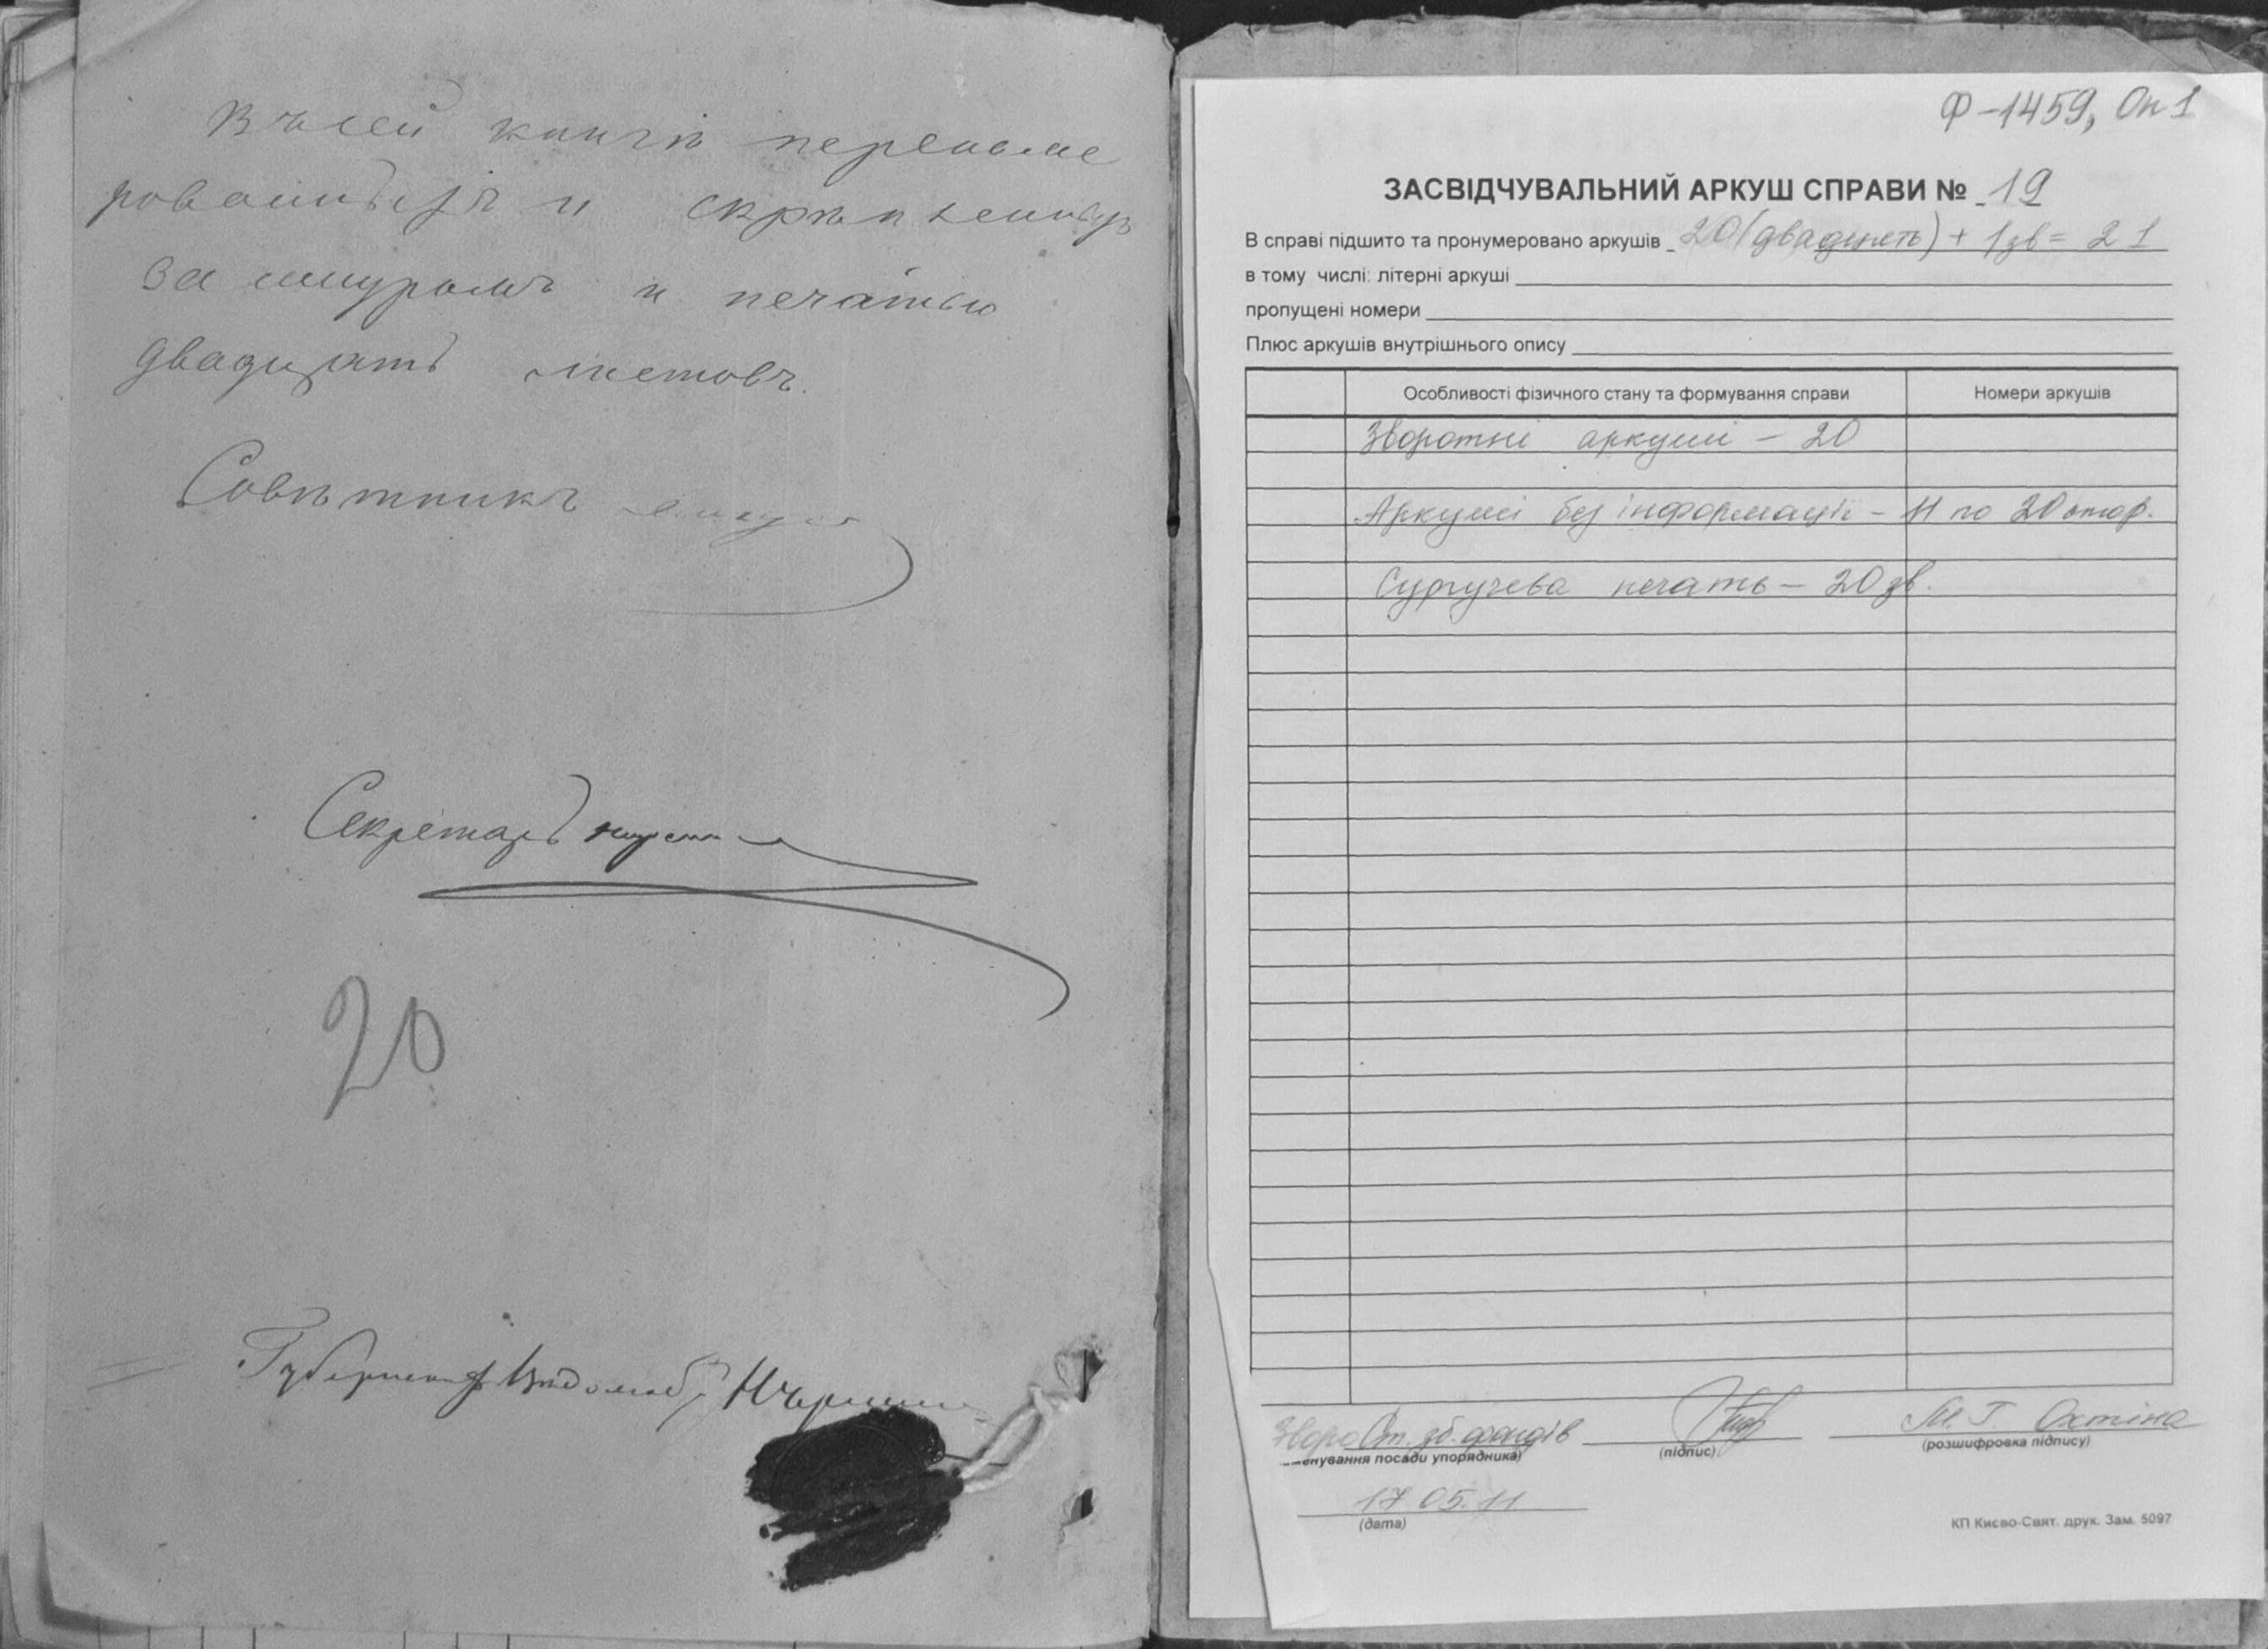 Въ сей книги перенуме
рованныхъ и скрѣпленныхъ
за шнуромъ и печатью
двадцать листовъ.
Совѣтникъ
Секретарь
20
Ф-1459, Оп 1
ЗАСВІДЧУВАЛЬНИЙ АРКУШ СПРАВИ № 19
В справі підшито та пронумеровано аркушів 20 (двадцять) + 1 зв = 21
в тому числі: літерні аркуші
пропущені номери
Плюс аркушів внутрішнього опису
Особливості фізичного стану та формування справи Номери аркушів
Зворотні аркуші – 20
Аркуші без інформації – 11 по 20
Сургучева печать – 20 зв.
Ст. зб. фондів М. Г. Охтіна
енування посади упорядника) (підпис) (розшифровка підпису)
17 05. 11
(дата)
КП Києво-Свят. друк. Зам. 5097